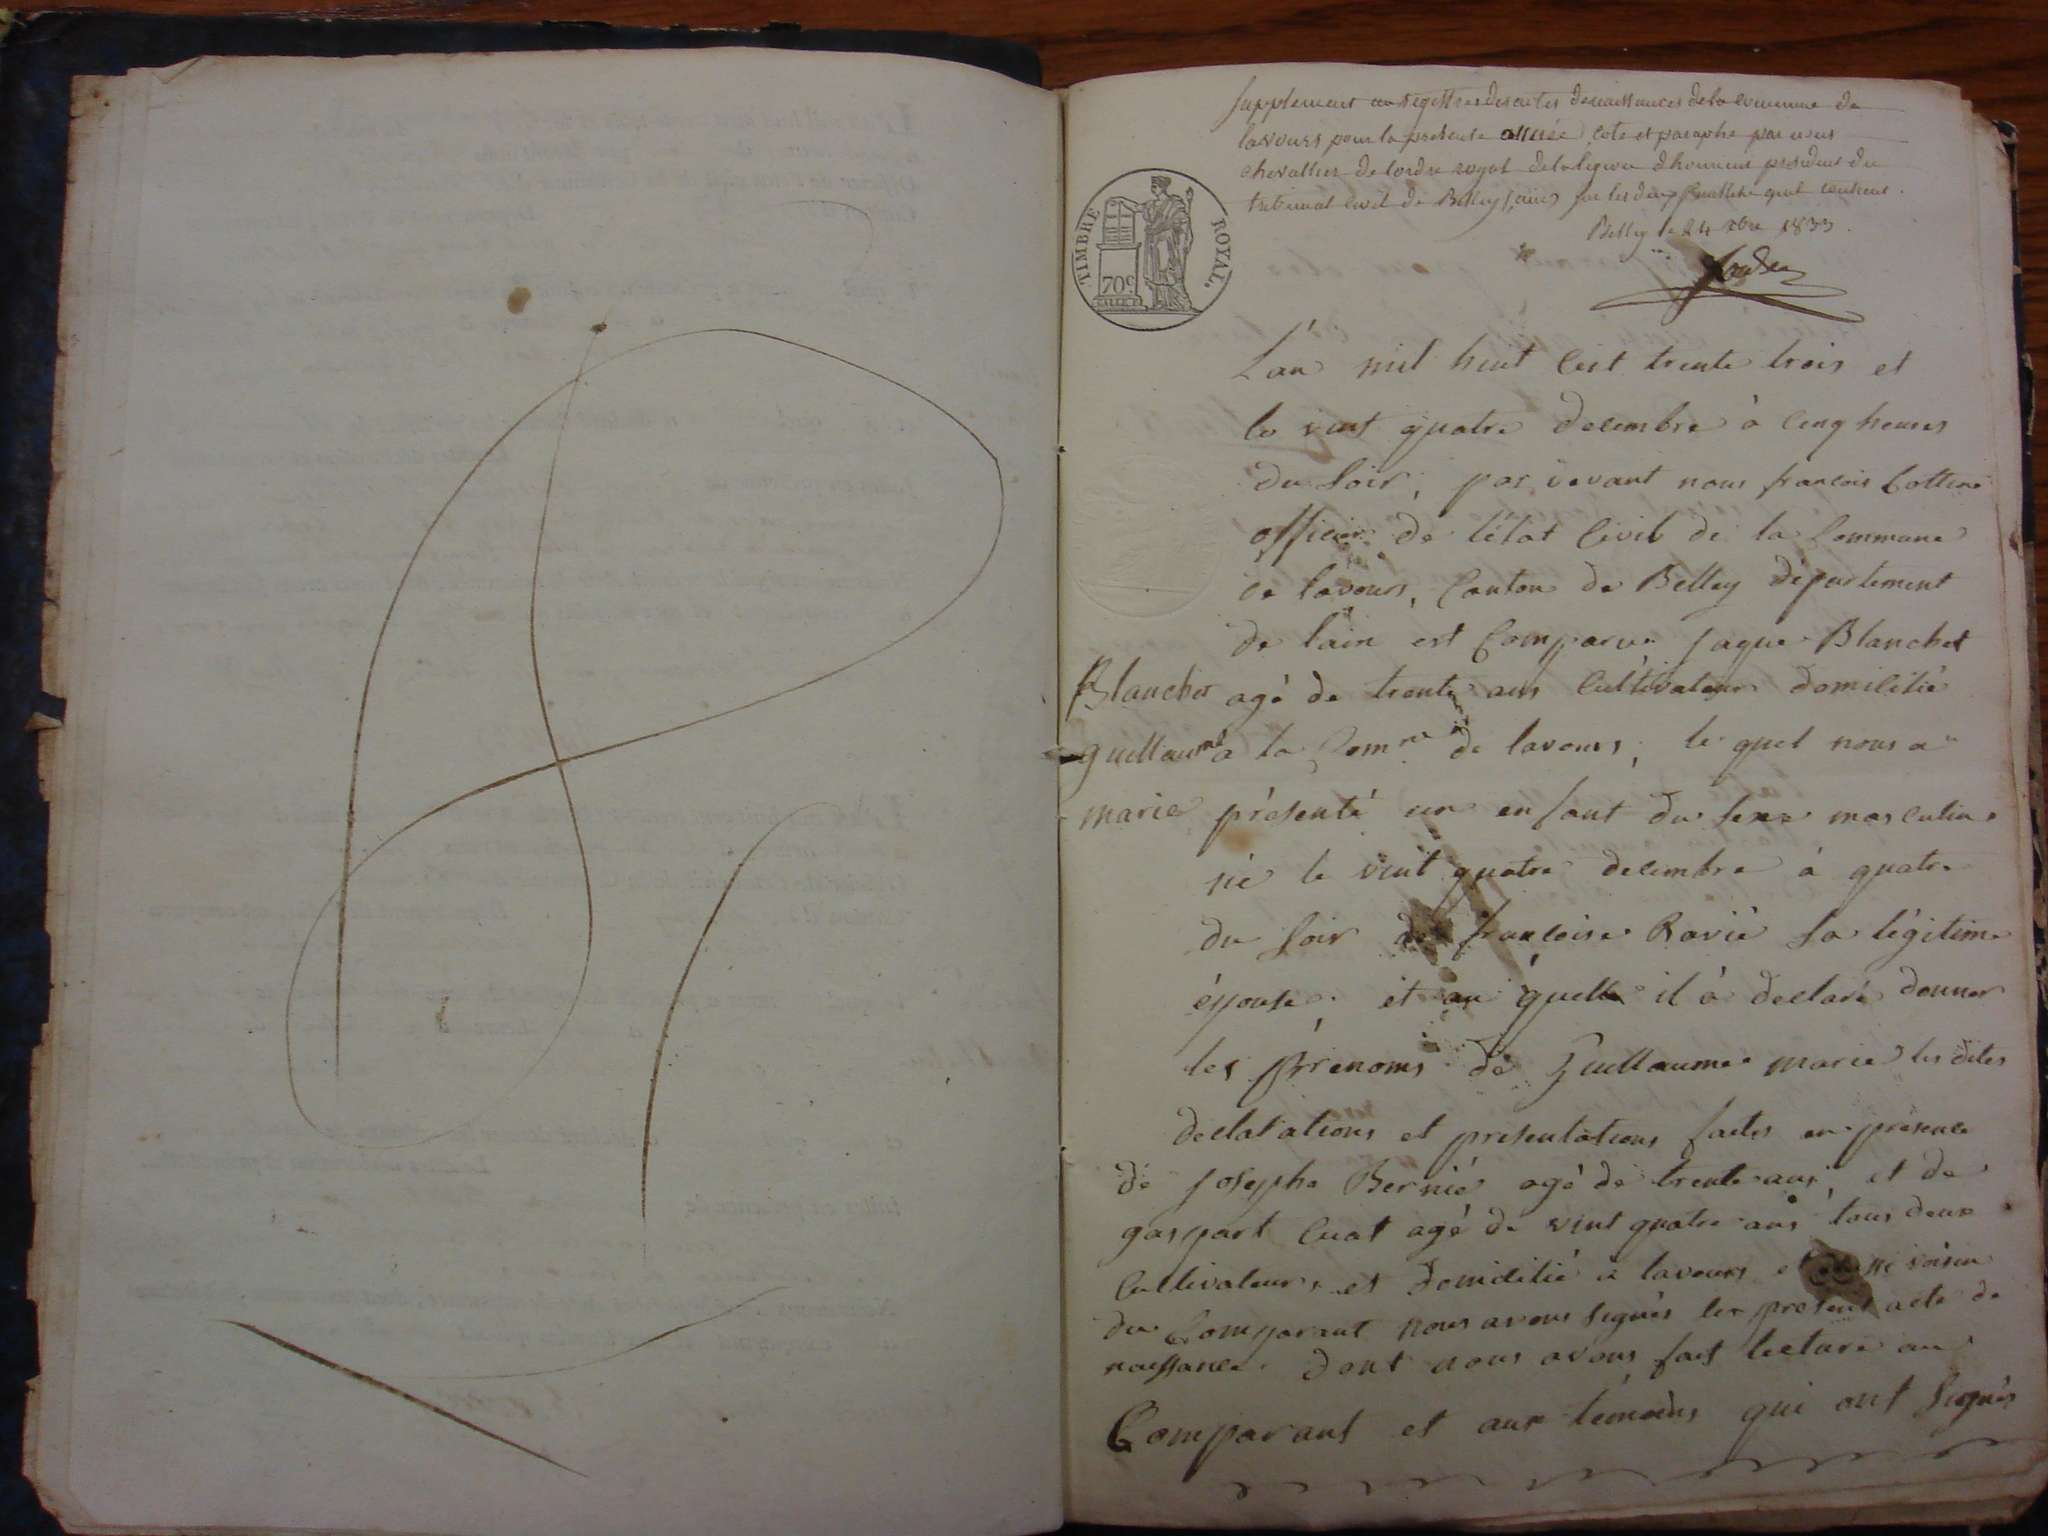 Supplement au registre des actes de naissances de la commune de
lavours pour la presente année, coté et paraphé par nous
chevallier de lordre royal de la legion dhonneur president du
tribunal civil de Belley sur les deux feuillets quil contient.
Belley le 24 xbre 1833.
TIMBRE ROYAL.
70c
L'an mil huit Cent trente trois et
le vint quatre decembre à Cinq heures
du Soir, par devant nous françois Cottin
officier de l'état Civil de la Commune
de lavours, Canton de Belley département
de lain est Comparu Jaque Blanchet
Blanchet
agé de trente ans Cultivateur domicilié
guillaume
à la Comne de lavours, le quel nous a
marie
présenté un enfant du sexe masculin
né le vint quatre decembre à quatre
du Soir de françoise Ravié sa légitime
épouse. et au quelle il à declaré donner
les prénoms de Guillaume marie les dites
declarations et presentations faites en présence
de Josephe Bernié agé de trente ans, et de
gaspart Cuat agé de vint quatre ans tous deux
Cultivateurs et domicilié à lavours et voisin
du Comparant nous avons signés le présent acte de
naissance. dont nous avons fait lecture au
Comparant et aux témoins qui ont Signés